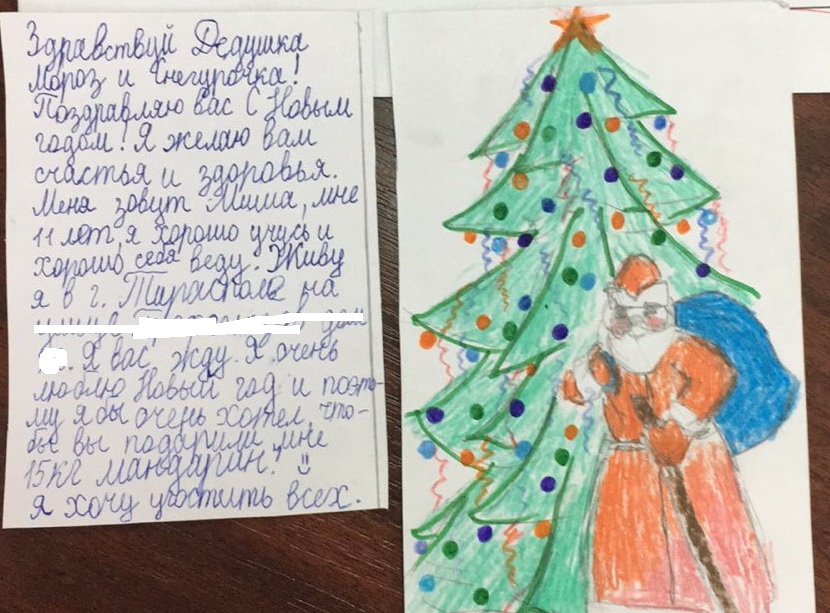 Здравствуй Дедушка
Мороз и Снегурочка!
Поздравляю вас С Новым
годом! Я желаю вам
счастья и здоровья.
Меня зовут Миша, мне
11 лет, я хорошо учусь и
хорошо себя веду. Живу
я в г. Тирасполе на
дом
. Я вас жду. Я очень
люблю Новый год и поэто-
му я бы очень хотел, что-
бы вы подарили мне
15кг мандарин!
Я хочу угостить всех.